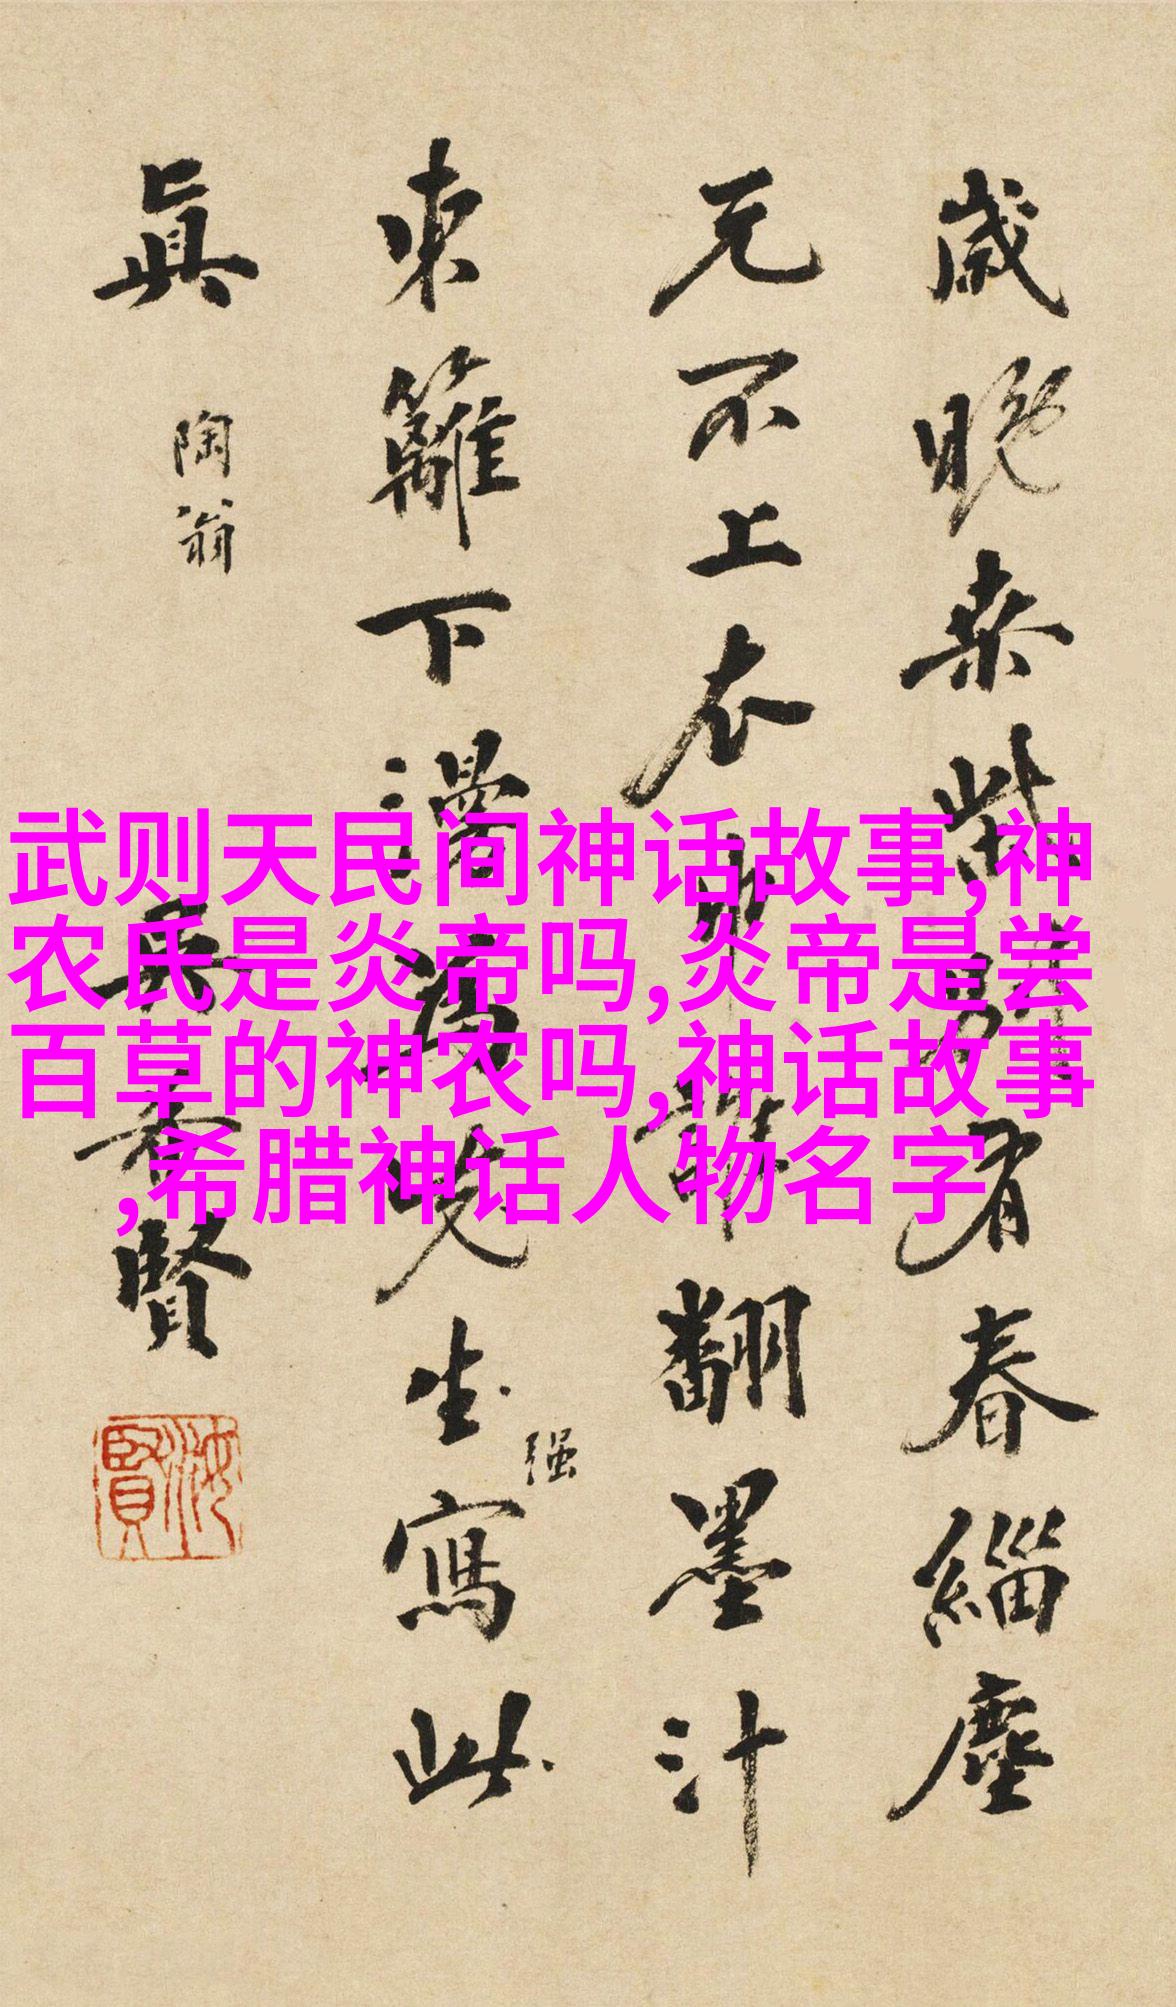 歲晚柴桑
有春緇塵
元不上衣
翻墨汁
東籬下漫
先生寫此
强
真
陶翁
吳
賢
海
賢
武则天民间神话故事,神
农氏是炎帝吗,炎帝是尝
百草的神农吗,神话故事
,希腊神话人物名字